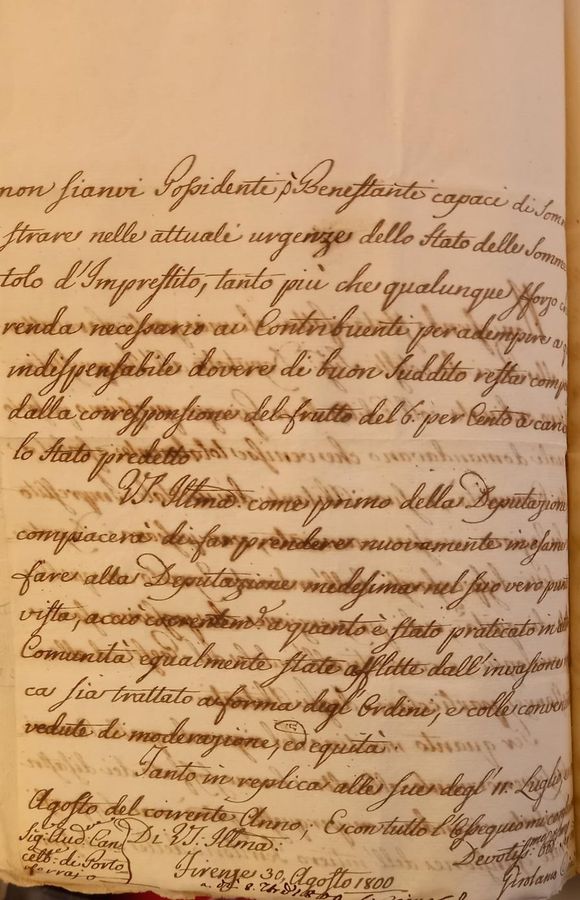 non sianvi Possidenti, ò Benestanti capaci di Som
strare nelle attuali urgenze dello Stato delle Somm
tolo d'Imprestito, tanto più che qualunque sforzo
renda necessario ai Contribuenti per adempire a
indispensabile dovere di buon Suddito resta comp
dalla corresponsione del frutto del 6. per Cento a cari
lo Stato predetto
VS. Illma: come primo della Deputazione
compiacerà di far prendere nuovamente in esame
fare alla Deputazione medesima nel suo vero pun
vista, acciò coerentem.e a quanto è stato praticato in
Comunità egualmente state afflitte dall'invasione
ca sia trattato a forma degl'Ordini, e colle conven
vedute di moderazione, ed equità
Tanto in replica alle sue degl'11. Luglio,
Agosto del corrente Anno; E con tutto l'Ossequio mi con
Di VS. Illma:
Sig. Aud. Can
cell: di Porto
ferrajo
Devotiss.mo
Firenze 30, Agosto 1800
Girolamo